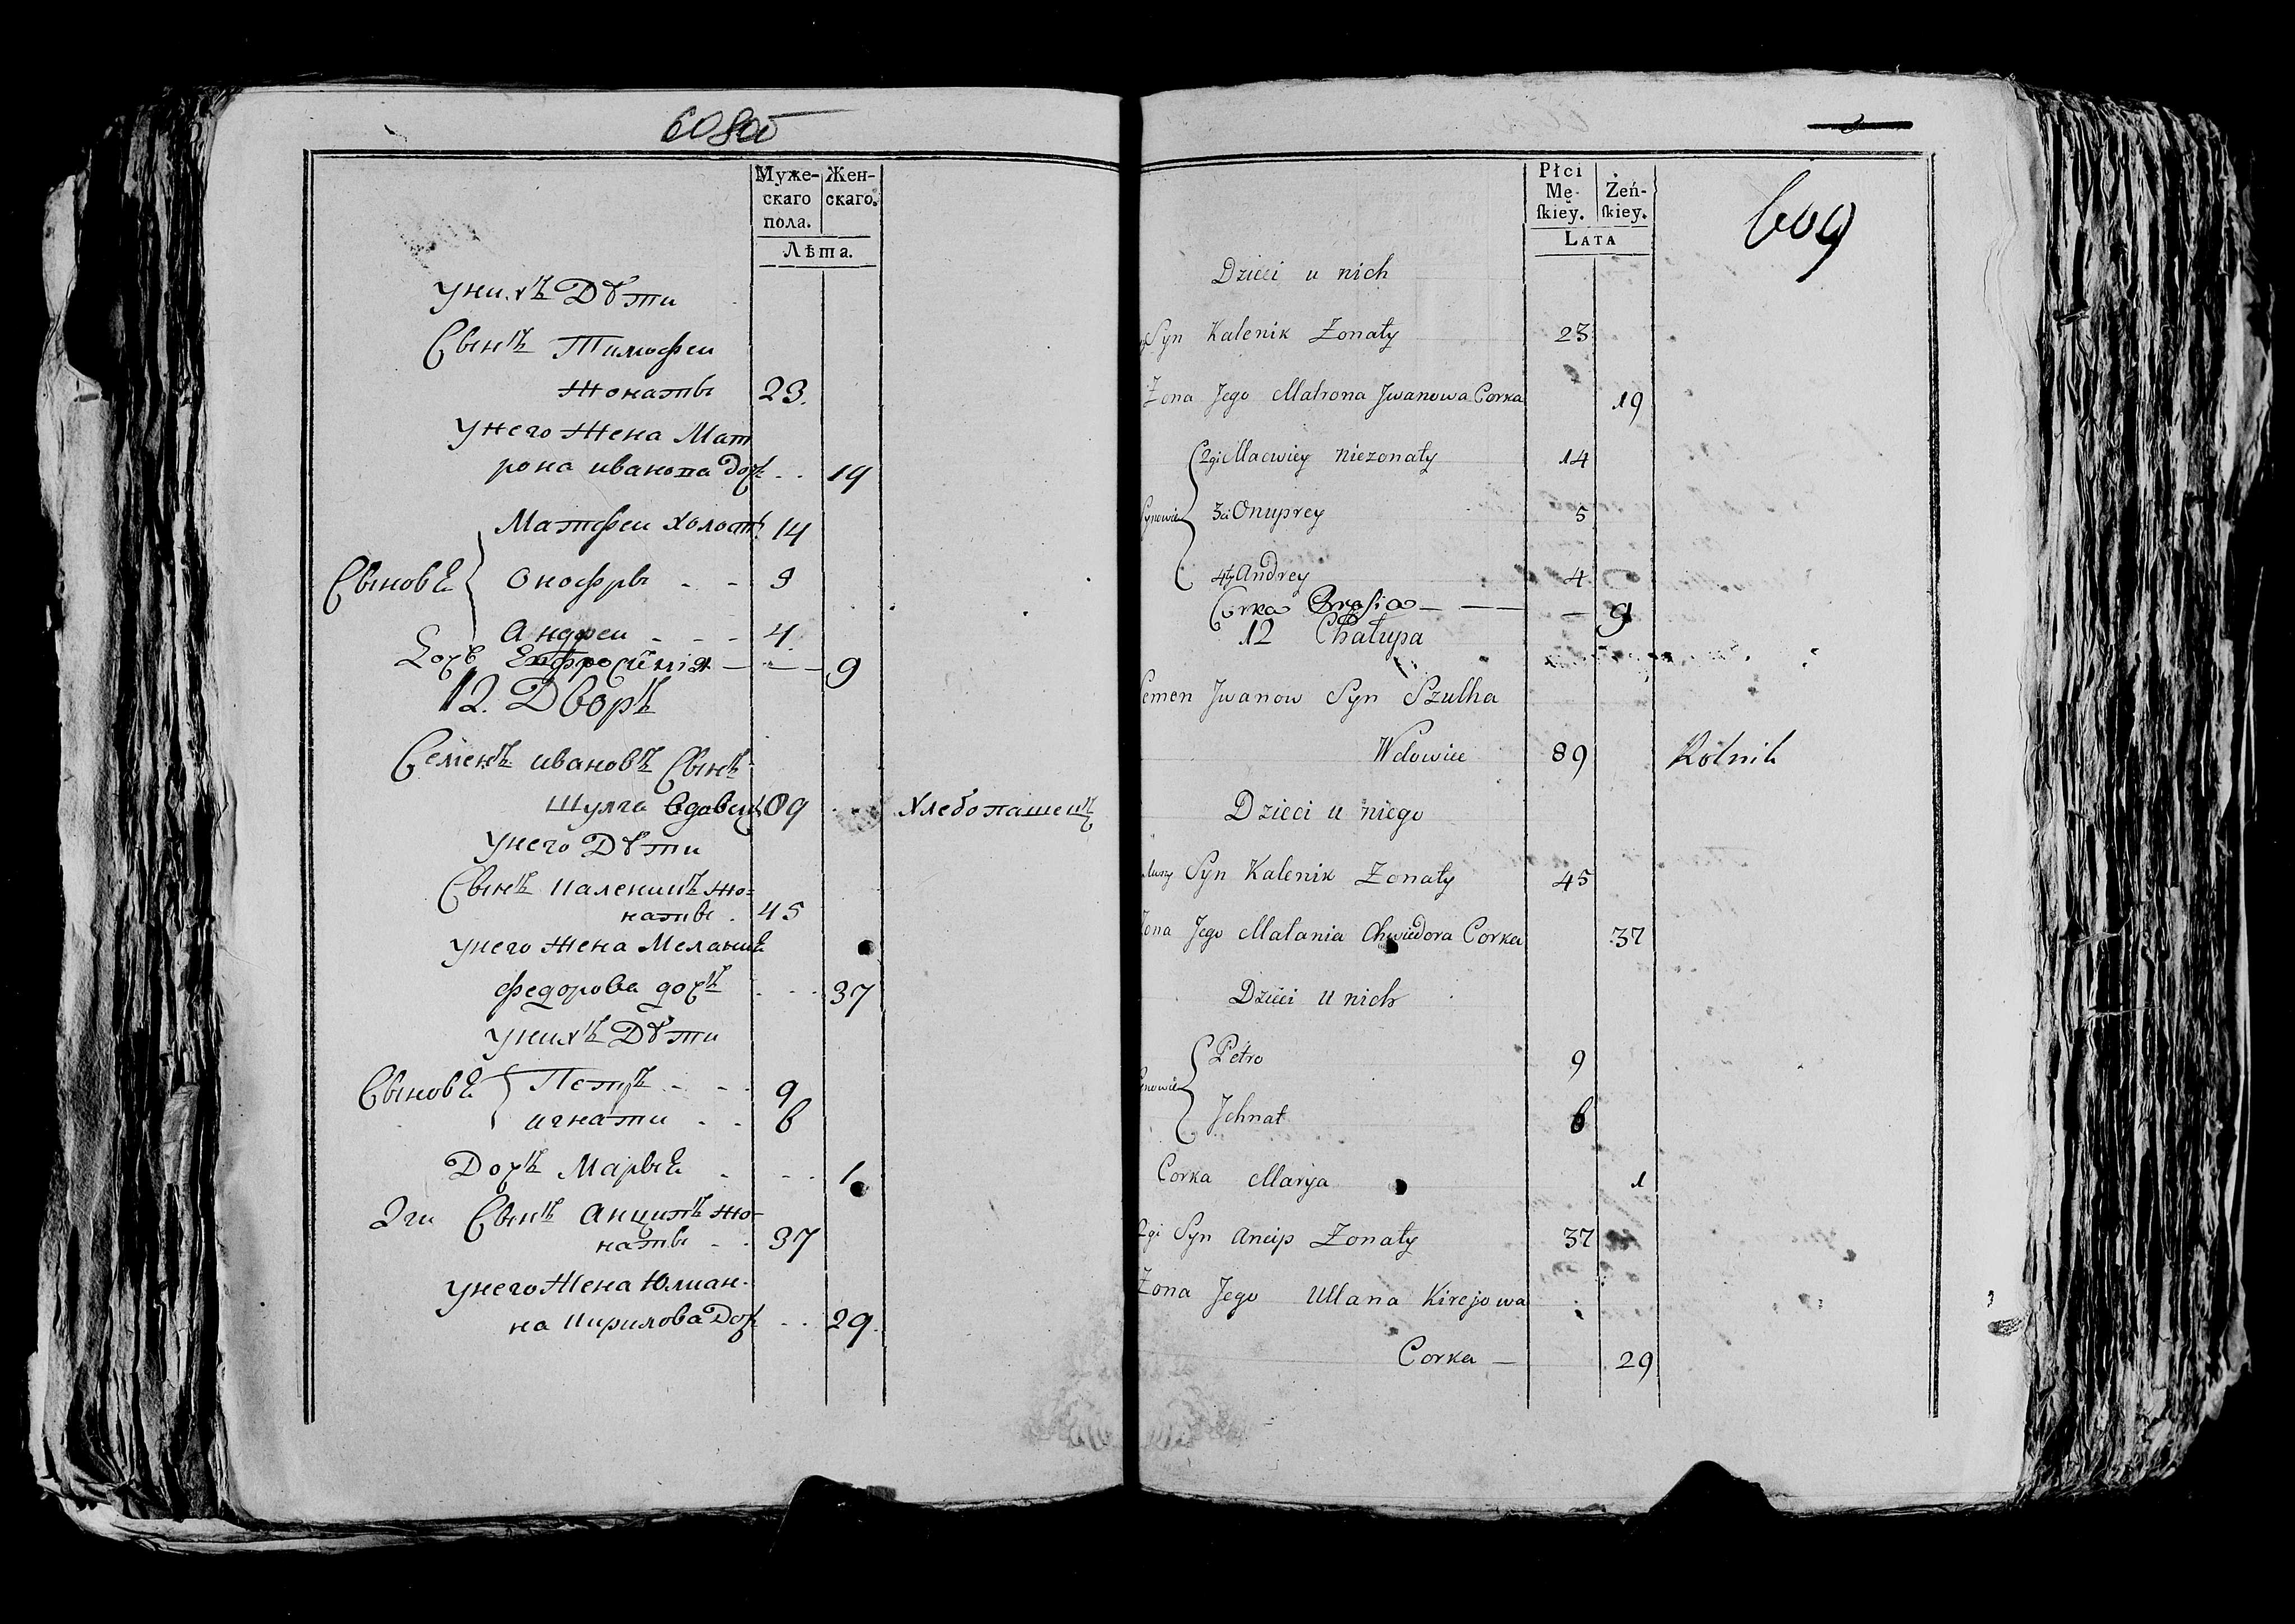 608об
Муже-
скаго
пола.
Жен-
скаго.
Лѣта.
унихъ Дѣти
Сынъ Тимофеи
жонаты 23.
унего жена Мат
рона иванова дочь . . 19
Матфеи холостъ 14
Сыновѣ Онофры - - 9
Андреи - - - 4.
Дочь Ефросинія — — — 9
12. Дворъ
Семенъ ивановъ Сынъ
Шулга вдовецъ 89 Хлебопашецъ
унего Дѣти
Сынъ каленикъ жо-
наты . 45
унего жена Меланиѣ
федорова дочь . . . 37
унихъ Дѣти
Сыновѣ Петръ - - - 9
игнати . . 6
Дочь Марьѣ . . . 1
2ги Сынъ анципъ жо-
наты - - 37
унего Жена Юлиан-
на кирилова Дочь . . 29.
609
Płci
Mę-
ſkiey.
Żeń-
ſkiey.
Lata
Dzieci u nich
Syn Kalenik Żonaty 23
Żona Jego Matrona Jwanowa Corka 19
2gi Macwiey Niezonaty 14
Synowie 3ci Onuprey 5
4ty Andrey 4
Corka — — — 9
12 Chałupa
Semen Jwanow Syn Szulha
Wdowiec 89 Rolnik
Dzieci u niego
Syn Kalenik Żonaty 45
Żona Jego Małania Chwiedora Corka 37
Dzieci u nich
Petro 9
Synowie
Jchnat 6
Corka Marya 1
2gi Syn Ancip Żonaty 37
Żona Jego Ullana Kirejowa
Corka — 29